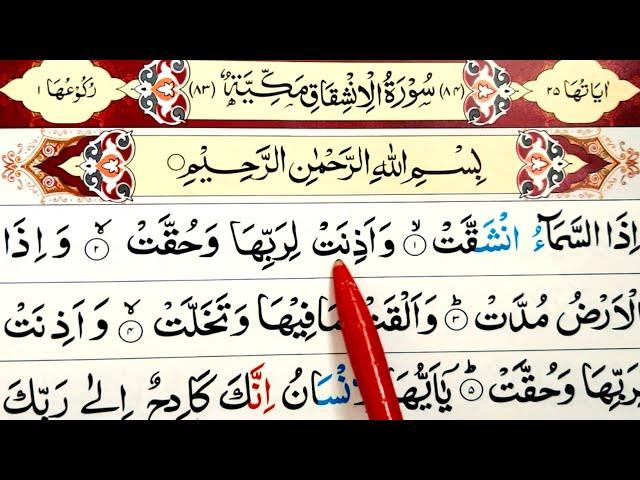 اٰيَاتُهَا ٢٥ (٨٤) سُوْرَةُ الْاِنْشِقَاقِ مَكِّيَّةٌ (٨٣) رُكُوْعُهَا ١
بِسْمِ اللّٰهِ الرَّحْمٰنِ الرَّحِيْمِ
اِذَا السَّمَآءُ انْشَقَّتْ ۙ﴿١﴾ وَاَذِنَتْ لِرَبِّهَا وَحُقَّتْ ۙ﴿٢﴾ وَ اِذَا
الْاَرْضُ مُدَّتْ ؕ﴿٣﴾ وَاَلْقَتْ مَا فِيْهَا وَتَخَلَّتْ ۙ﴿٤﴾ وَاَذِنَتْ
لِرَبِّهَا وَحُقَّتْ ؕ﴿٥﴾ يٰۤاَيُّهَا الْاِنْسَانُ اِنَّكَ كَادِحٌ اِلٰى رَبِّكَ